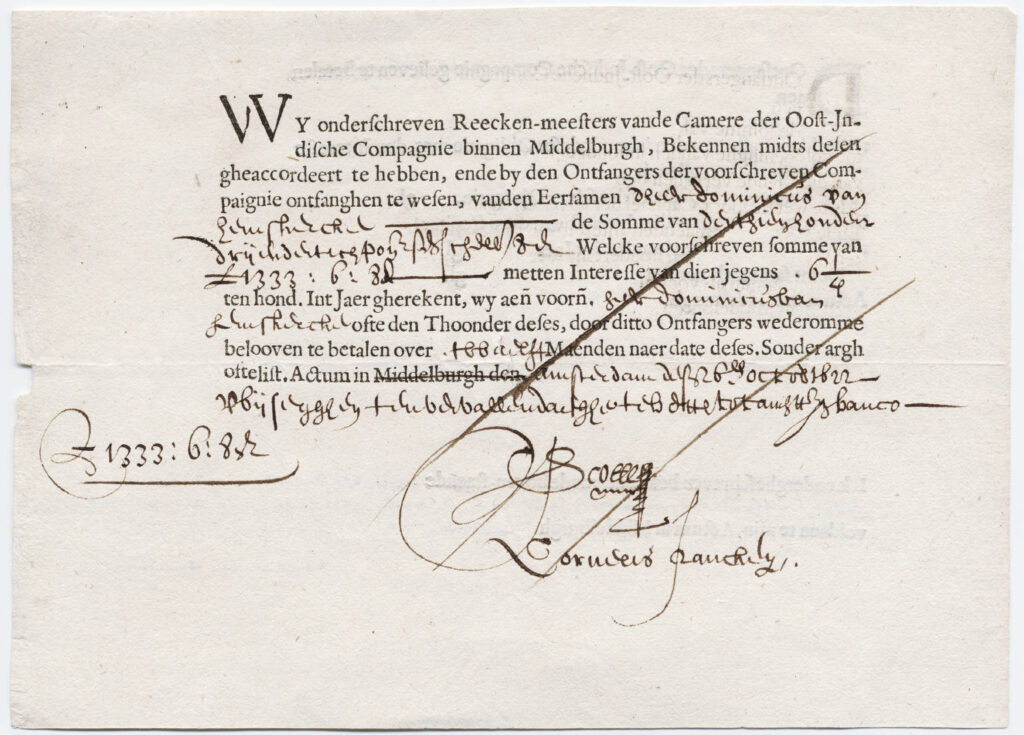 WY onderschreven Reecken-meesters vande Camere der Oost-Jn-
dische Compagnie binnen Middelburgh, Bekennen midts desen
gheaccordeert te hebben, ende by den Ontfangers der voorschreven Com-
paignie ontfanghen te wesen, vanden Eersamen dheer dominicus van
heemskercke de Somme van derthien honder
drijendertich pon sch Welcke voorschreven somme van
£ 1333 : 6 : 8 metten Interesse van dien jegens 6 1/4
ten hond. Int Jaer gherekent, wy aen voorñ. heer dominicus van
heemskercke ofte den Thoonder deses, door ditto Ontfangers wederomme
belooven te betalen over twaelff Maenden naer date deses. Sonder argh
ofte list. Actum in Middelburgh den Amsterdam desen 26en octob 1622
banco
£ 1333 : 6 : 8
Cornelis